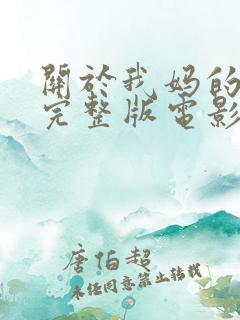 關於我媽的
完整版電影
唐伯超
未任同意禁止转载